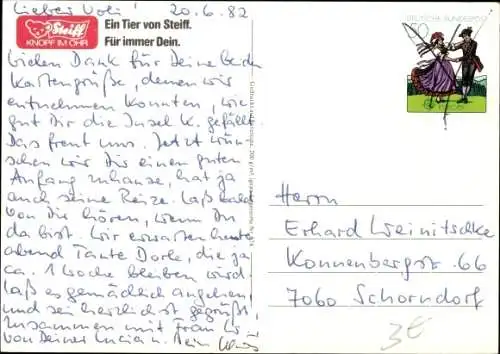 Lieber Voli! 20.6.82
Steiff
KNOPF IM OHR
Ein Tier von Steiff.
Für immer Dein.
Vielen Dank für Deine beiden
Kartengrüße, denen wir
entnehmen konnten, wie
gut Dir die Insel K. gefällt.
Das freut uns. Jetzt wün-
schen wir Dir einen guten
Anfang zuhause, hat ja
auch seine Reize. Laß bald
von Dir hören, wenn Du
da bist. Wir erwarten heute
abend Tante Dorle, die ja
ca. 1 Woche bleiben wird.
Laß es gemächlich angehen
und sei herzlichst gegrüßt,
zusammen mit Frau
von Deiner
DEUTSCHE BUNDESPOST
50
Herrn
Erhard Weinitschke
Konnenbergst. 66
7060 Schorndorf
3€